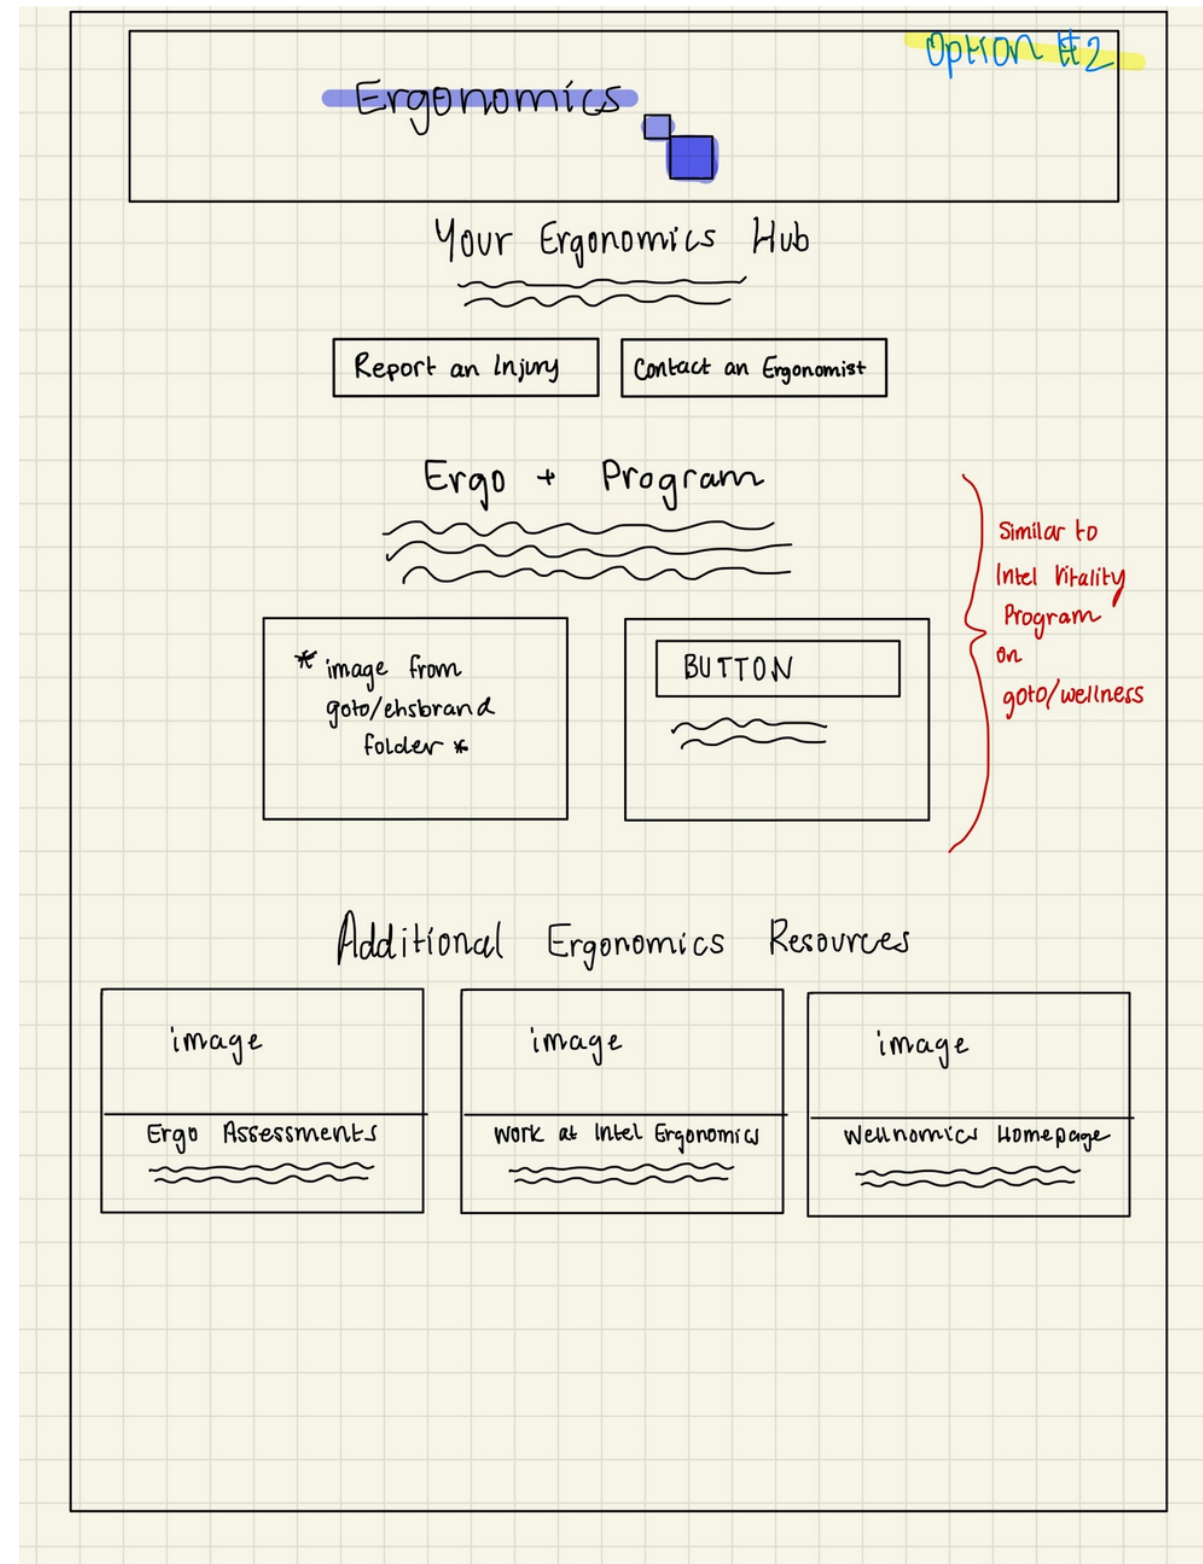 Option #2
Ergonomics
Your Ergonomics Hub
Report an Injury
Contact an Ergonomist
Ergo + Program
* image from
goto/ehsbrand
folder *
BUTTON
Similar to
Intel Vitality
Program
on
goto/wellness
Additional Ergonomics Resources
image
Ergo Assessments
image
Work at Intel Ergonomics
image
Wellnomics Homepage